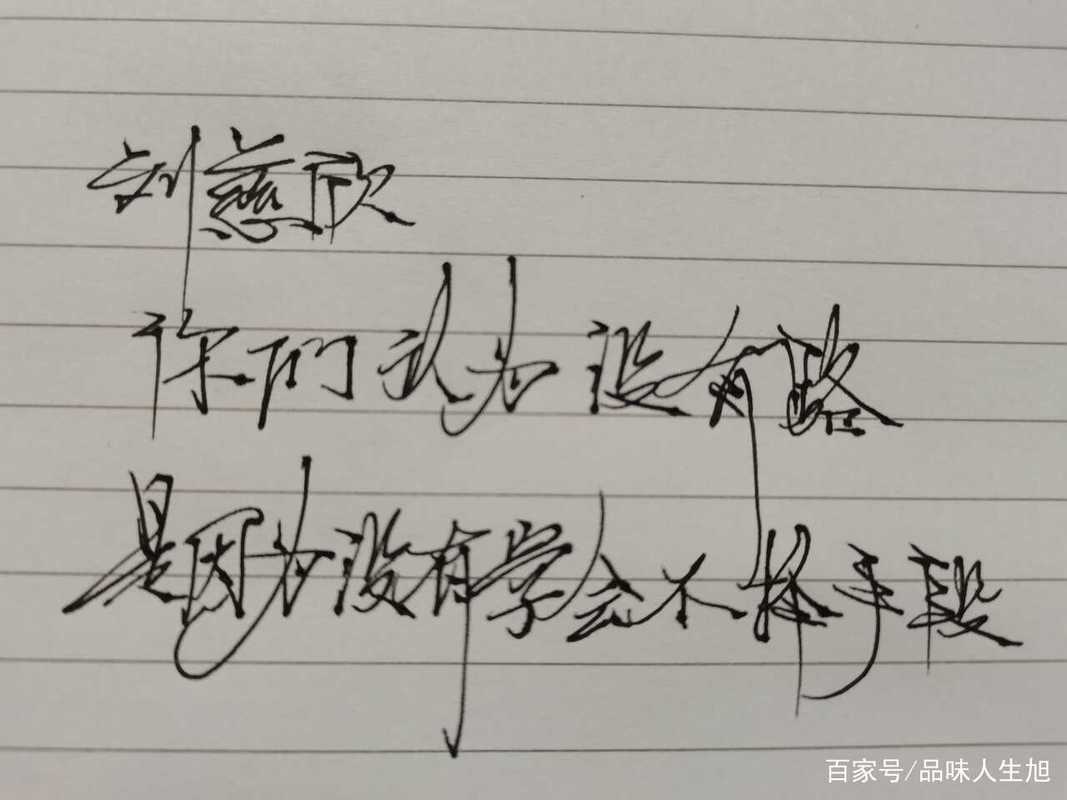 刘慈欣
你们认为没有路
是因为没有学会不择手段
百家号/品味人生旭